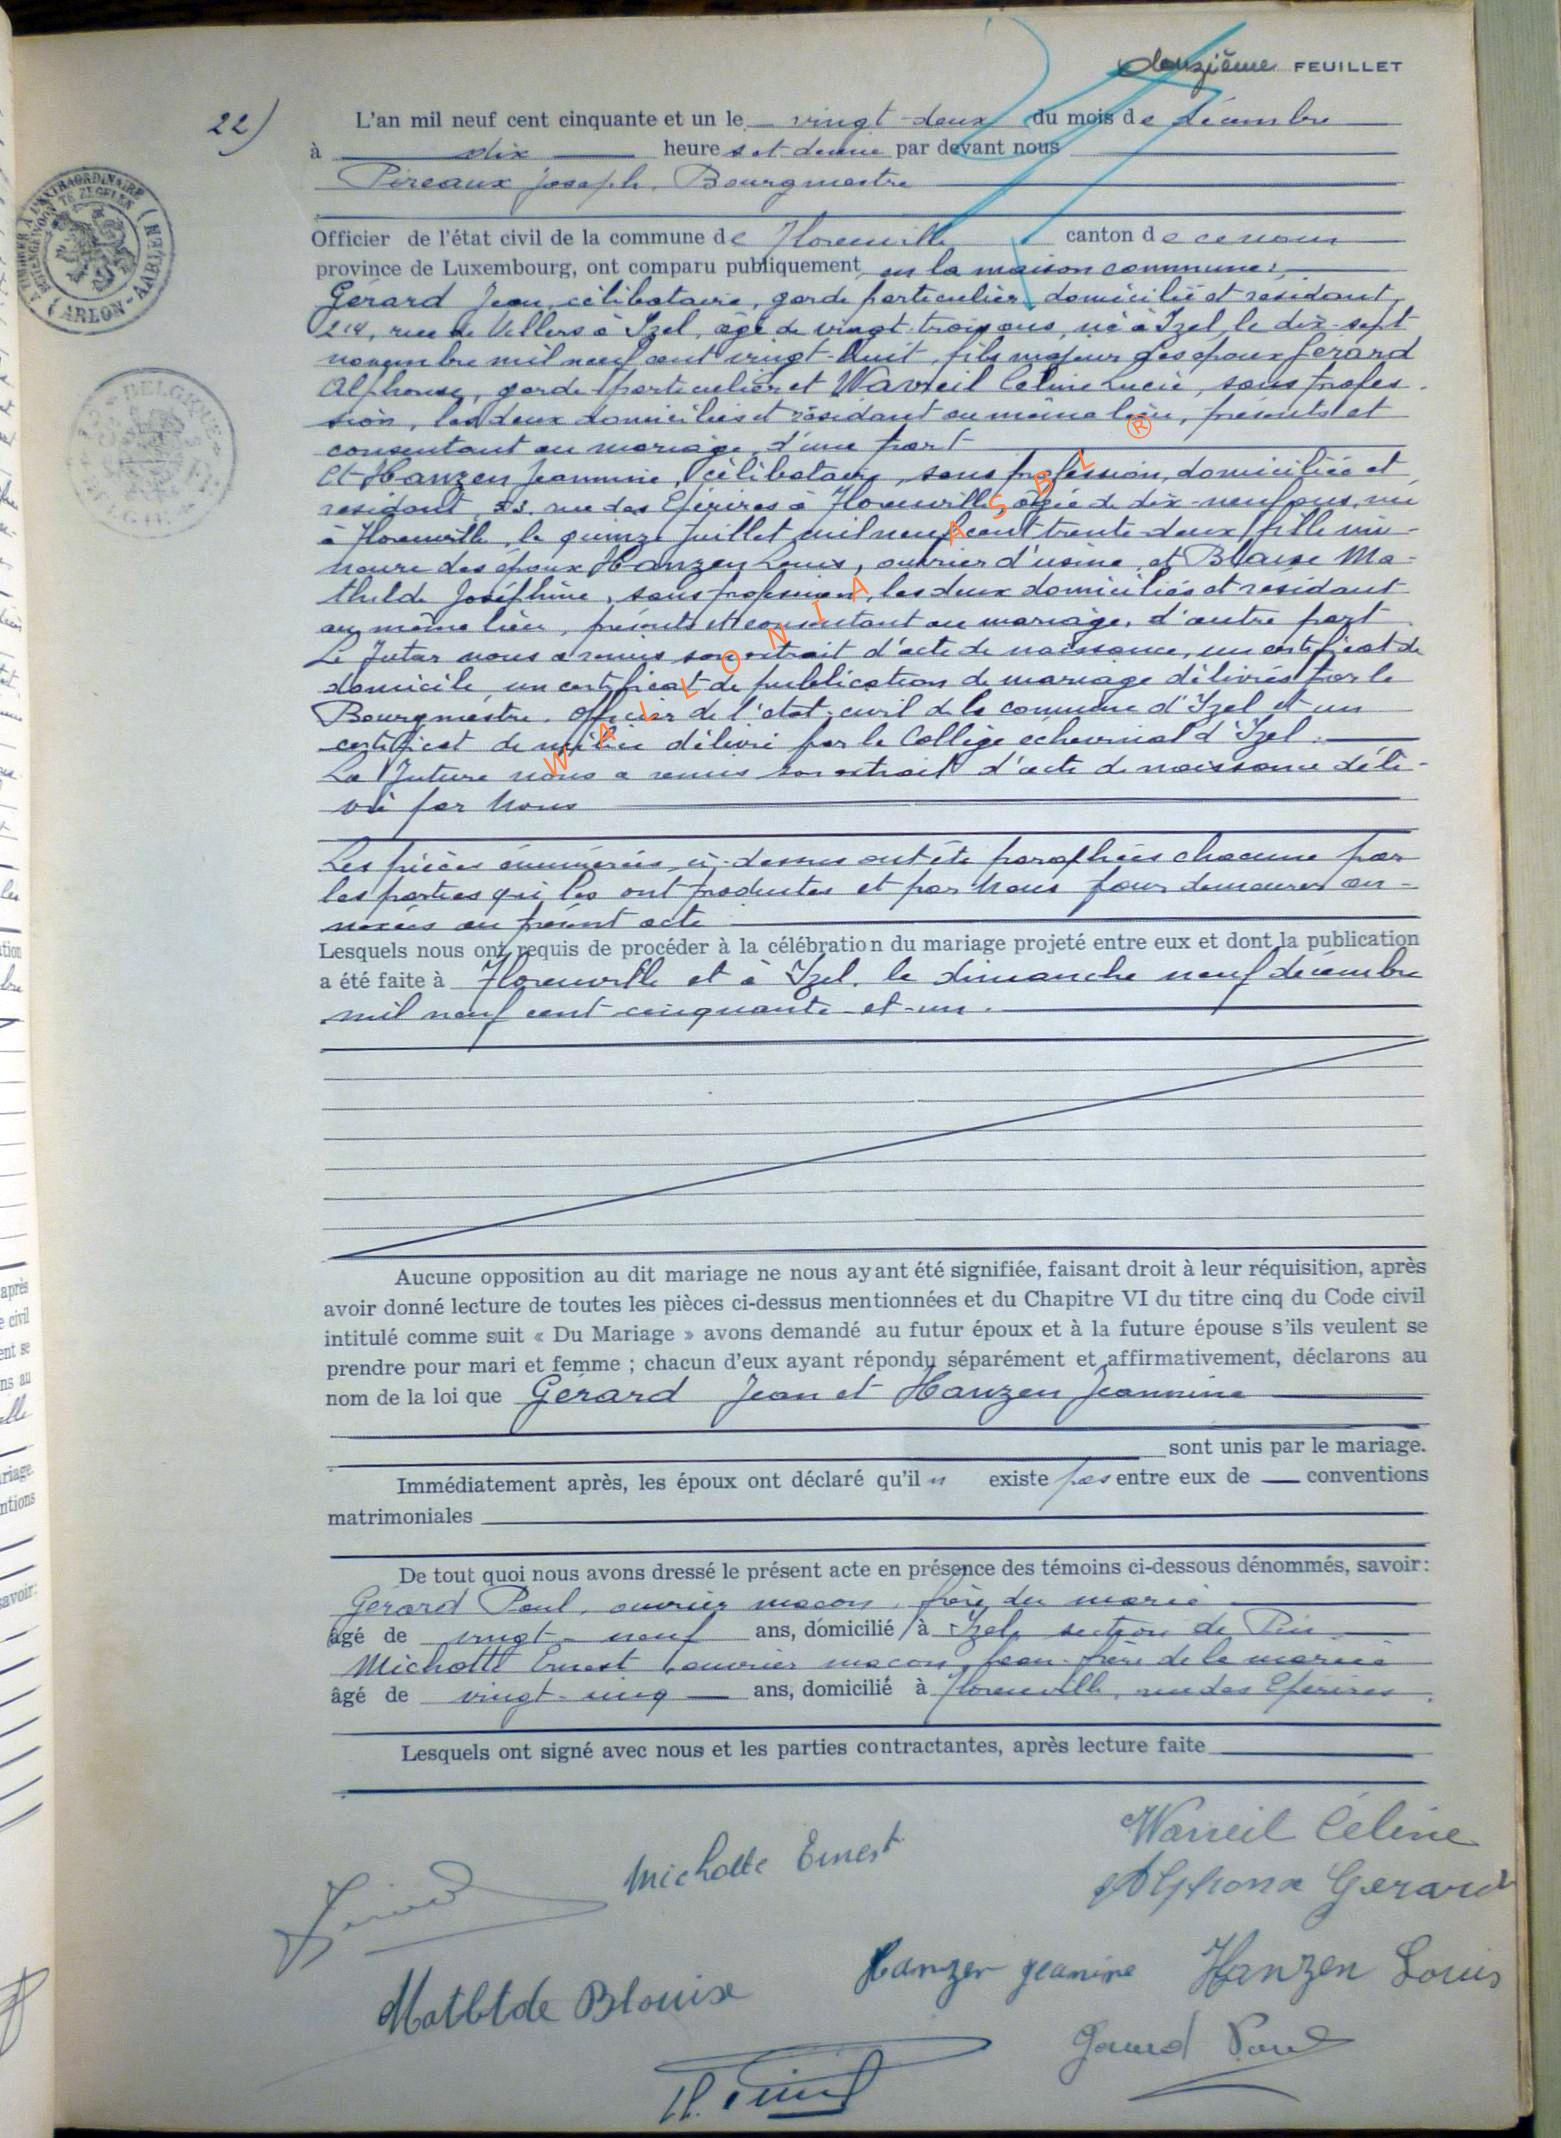 douzième FEUILLET
22)
L'an mil neuf cent cinquante et un le vingt-deux du mois de décembre
à dix heures et demie par devant nous
Pireaux Joseph, Bourgmestre
Officier de l'état civil de la commune de Florenville canton de ce nom
province de Luxembourg, ont comparu publiquement en la maison commune:
Gérard Jean, célibataire, garde particulier, domicilié et résidant,
214, rue de Villers à Izel, âgé de vingt-trois ans, né à Izel, le dix-sept
novembre mil neuf cent vingt-huit, fils majeur des époux Gérard
Alphonse, garde particulier et Wavreil Céline Lucie, sans profes-
sion, les deux domiciliés et résidant au même lieu, présents et
consentant au mariage, d'une part
Et Hanzen Jeannine, célibataire, sans profession, domiciliée et
résidant, 53, rue des Epérires à Florenville, âgée de dix-neuf ans, née
à Florenville, le quinze juillet mil neuf cent trente-deux, fille mi-
neure des époux Hanzen Louis, ouvrier d'usine, et Blaise Ma-
thilde Joséphine, sans profession, les deux domiciliés et résidant
au même lieu, présents et consentant au mariage, d'autre part
Le futur nous a remis son extrait d'acte de naissance, un certificat de
domicile, un certificat de publication de mariage délivrés par le
Bourgmestre. Officier de l'état-civil de la commune d'Izel et un
certificat de milice délivré par le Collège échevinal d'Izel.
La future nous a remis son extrait d'acte de naissance déli-
vré par nous
Les pièces énumérées ci-dessus ont été paraphées chacune par
les parties qui les ont produites et par nous pour demeurer an-
nexées au présent acte
Lesquels nous ont requis de procéder à la célébration du mariage projeté entre eux et dont la publication
a été faite à Florenville et à Izel, le dimanche neuf décembre
mil neuf cent cinquante-et-un.
Aucune opposition au dit mariage ne nous ayant été signifiée, faisant droit à leur réquisition, après
avoir donné lecture de toutes les pièces ci-dessus mentionnées et du Chapitre VI du titre cinq du Code civil
intitulé comme suit « Du Mariage » avons demandé au futur époux et à la future épouse s'ils veulent se
prendre pour mari et femme ; chacun d'eux ayant répondu séparément et affirmativement, déclarons au
nom de la loi que Gérard Jean et Hanzen Jeannine
sont unis par le mariage.
Immédiatement après, les époux ont déclaré qu'il n existe pas entre eux de conventions
matrimoniales
De tout quoi nous avons dressé le présent acte en présence des témoins ci-dessous dénommés, savoir:
Gérard Paul, ouvrier maçon, frère du marié
âgé de vingt-neuf ans, domicilié à Izel, section de Pin
Michotte Ernest, ouvrier maçon, beau-frère de la mariée
âgé de vingt-cinq ans, domicilié à Florenville, rue des Epérires.
Lesquels ont signé avec nous et les parties contractantes, après lecture faite
Wavreil Céline
Michotte Ernest
Alphonse Gerard
Hanzen Jeanine Hanzen Louis
Mathilde Blaise
Gerard Paul
WALLONIA ASBL ®
ARLON-AARLEN
BELGIQUE